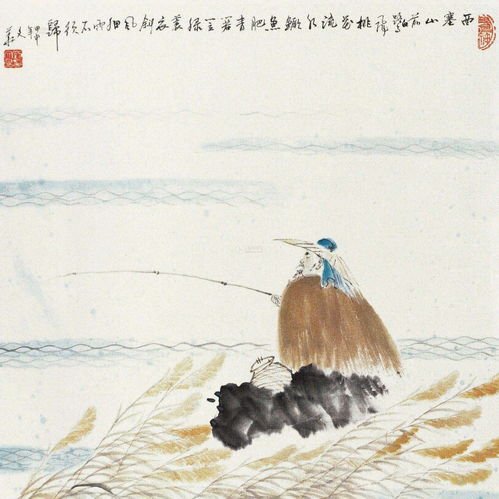 西塞山前白鷺飛桃花流水鱖魚肥青箬笠綠蓑衣斜風細雨不須歸